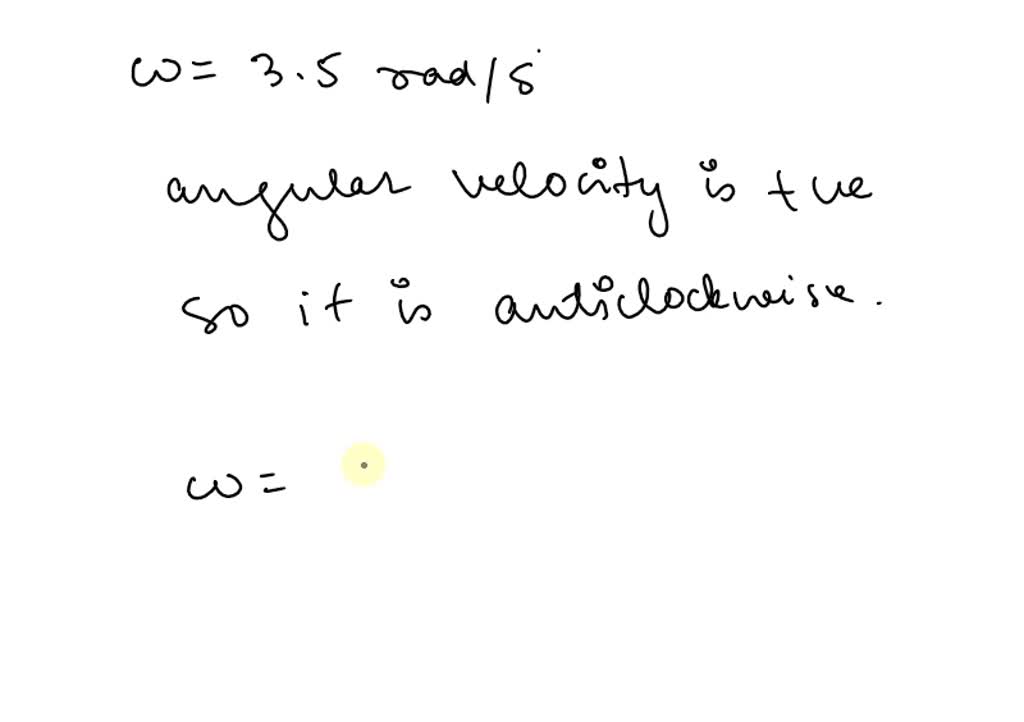 ω = 3.5 rad/s
angular velocity is +ve
so it is anticlockwise.
ω =